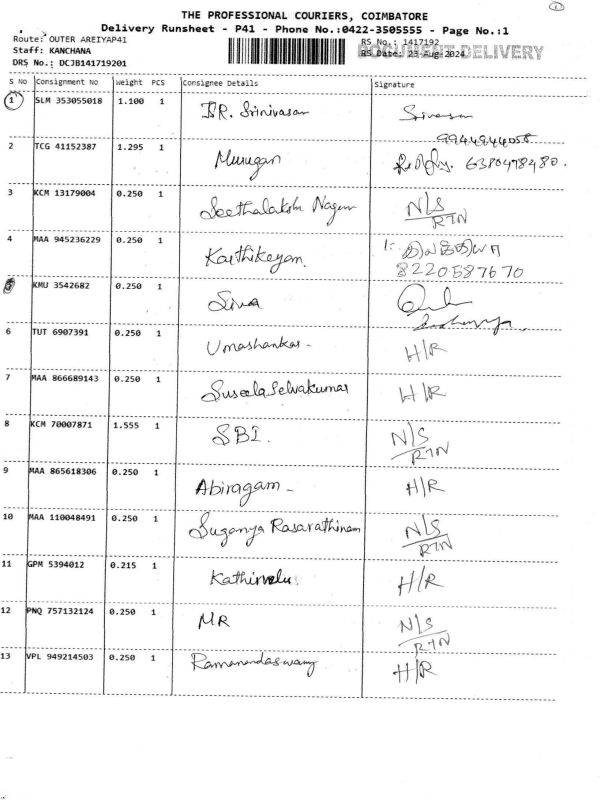 THE PROFESSIONAL COURIERS, COIMBATORE
Delivery Runsheet - P41 - Phone No.:0422-3505555 - Page No.:1
Route: OUTER AREIYAP41
Staff: KANCHANA
DRS No.: DCJB141719201
RS No.: 1417192
RS Date: 23-Aug-2024
DOCUMENT DELIVERY
S No Consignment No Weight PCS Consignee Details Signature
1 SLM 353055018 1.100 1 R. Srinivasan
9944944058
2 TCG 41152387 1.295 1 Murugan 6380478480.
3 KCM 13179004 0.250 1 Seethalakshmi N/S
RTN
4 MAA 945236229 0.250 1 Karthikeyan
8220587670
KMU 3542682 0.250 1 Siva
6 TUT 6907391 0.250 1 Umashankar - H/R
7 MAA 866689143 0.250 1 Suseela Selvakumar H/R
8 KCM 70007871 1.555 1 SBI. N/S
RTN
9 MAA 865618306 0.250 1 Abiragam - H/R
10 MAA 110048491 0.250 1 Suganya Rasarathinam N/S
RTN
11 GPM 5394012 0.215 1 Kathirvelu H/R
12 PNQ 757132124 0.250 1 MR N/S
RTN
13 VPL 949214503 0.250 1 Ramanandaswamy H/R